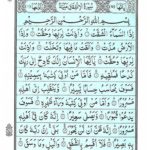 بِسْمِ اللَّهِ الرَّحْمَٰنِ الرَّحِيمِ
إِذَا السَّمَاءُ انْشَقَّتْ ۝ وَأَذِنَتْ لِرَبِّهَا وَحُقَّتْ ۝ وَإِذَا
الْأَرْضُ مُدَّتْ ۝ وَأَلْقَتْ مَا فِيهَا وَتَخَلَّتْ ۝ وَأَذِنَتْ
لِرَبِّهَا وَحُقَّتْ ۝ يَا أَيُّهَا الْإِنْسَانُ إِنَّكَ كَادِحٌ إِلَىٰ رَبِّكَ
كَدْحًا فَمُلَاقِيهِ ۝ فَأَمَّا مَنْ أُوتِيَ كِتَابَهُ بِيَمِينِهِ ۝
فَسَوْفَ يُحَاسَبُ حِسَابًا يَسِيرًا ۝ وَيَنْقَلِبُ إِلَىٰ أَهْلِهِ
مَسْرُورًا ۝ وَأَمَّا مَنْ أُوتِيَ كِتَابَهُ وَرَاءَ ظَهْرِهِ ۝ فَسَوْفَ
يَدْعُو ثُبُورًا ۝ وَيَصْلَىٰ سَعِيرًا ۝ إِنَّهُ كَانَ فِي أَهْلِهِ
مَسْرُورًا ۝ إِنَّهُ ظَنَّ أَنْ لَنْ يَحُورَ ۝ بَلَىٰ إِنَّ رَبَّهُ كَانَ